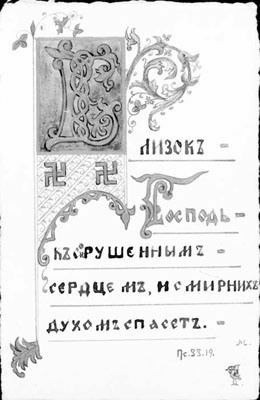 Близокъ –
Господь –
къ сокрушеннымъ
сердцемъ, и смирнихъ
духомъ спасетъ. –
Пс. 33. 19.